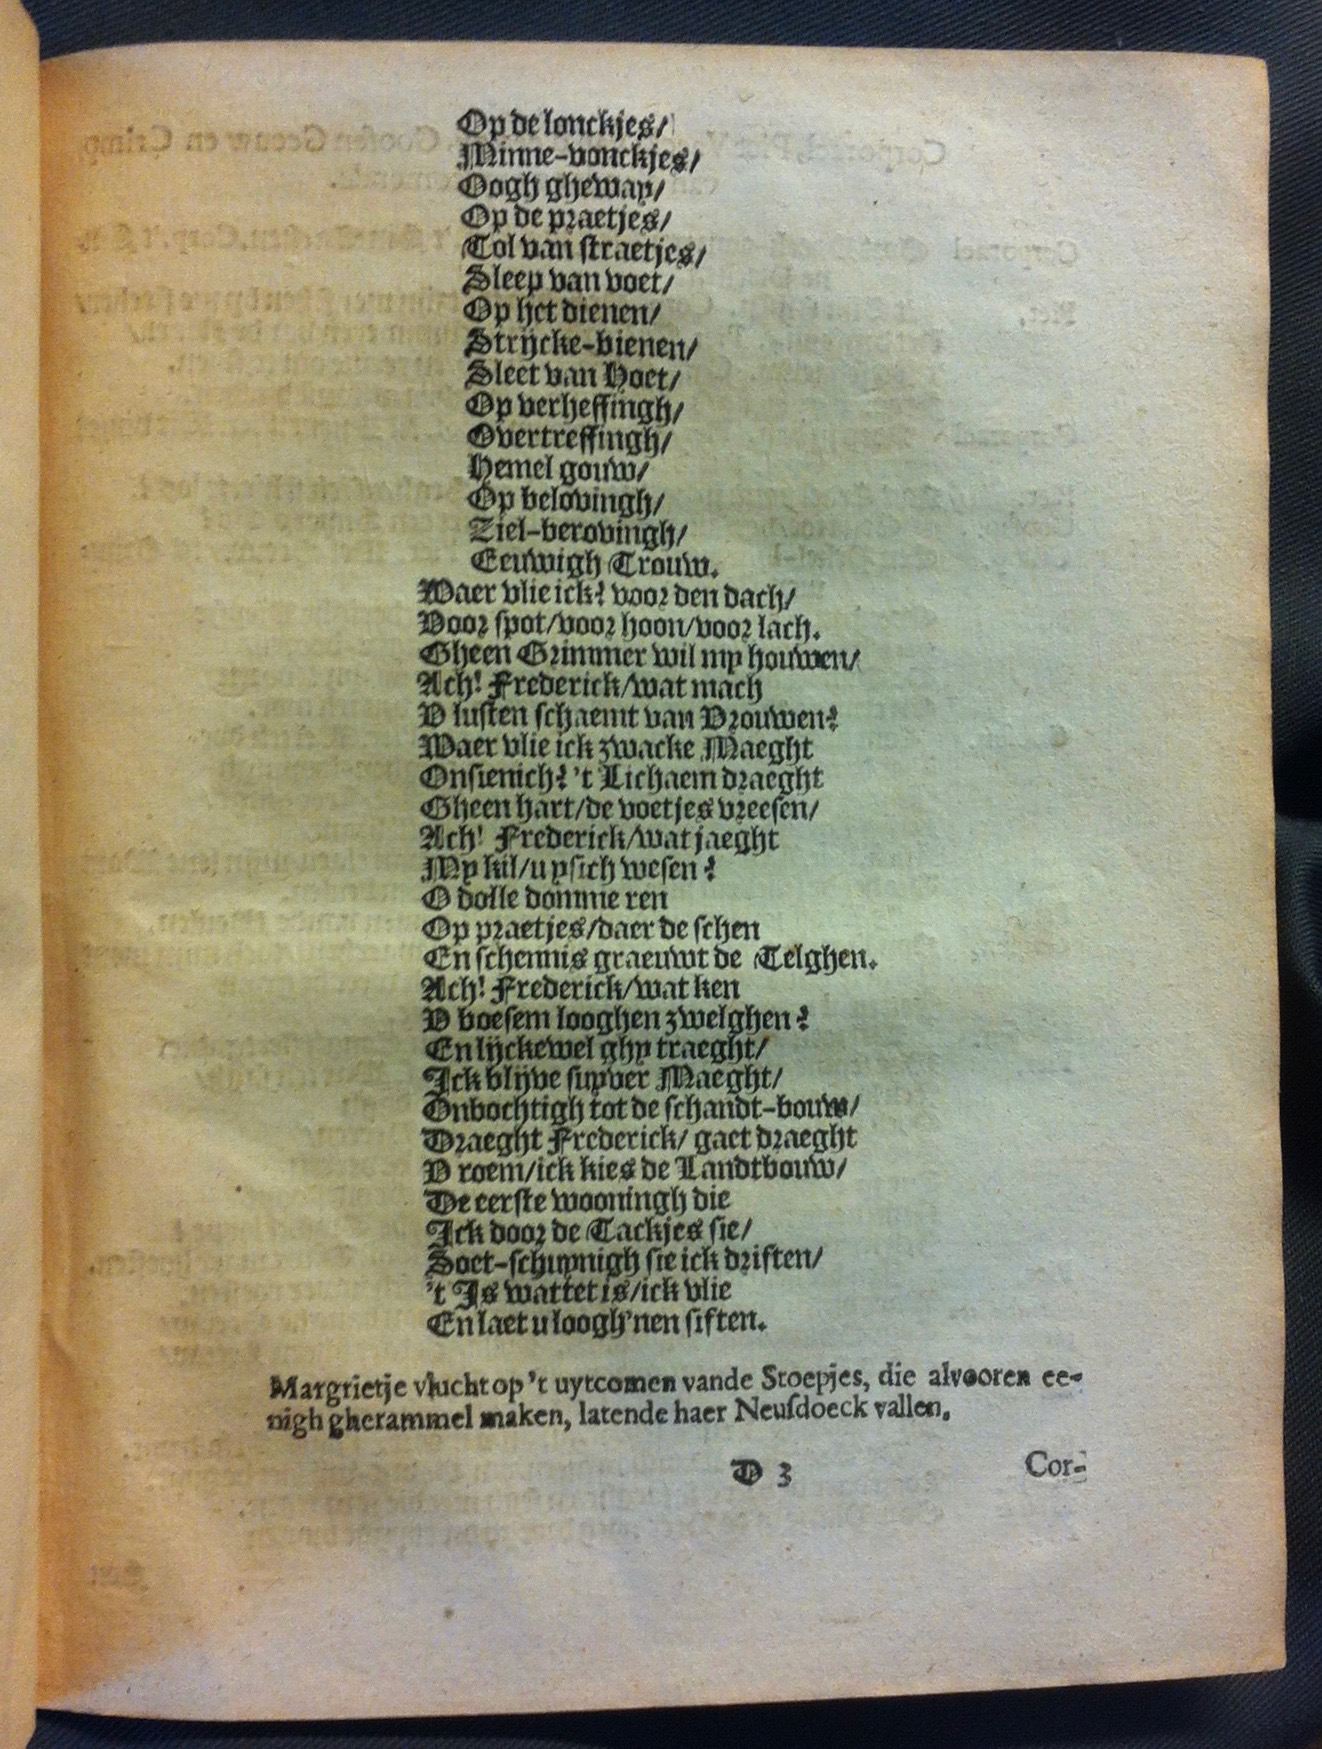 Op de lonckjes/
Minne-vonckjes/
Oogh gheway/
Op de praetjes/
Tol van straetjes/
Sleep van voet/
Op het dienen/
Strijcke-bienen/
Sleet van Hoet/
Op verheffingh/
Overtreffingh/
Hemel gouw/
Op belovingh/
Ziel-berovingh/
Eeuwigh Trouw.
Waer vlie ick? voor den dach/
Voor spot/voor hoon/voor lach.
Gheen Grimmer wil my houwen/
Ach! Frederick/wat mach
V lusten schaemt van Vrouwen?
Waer vlie ick zwacke Maeght
Onsienich? 't Lichaem draeght
Gheen hart/de voetjes vreesen/
Ach! Frederick/wat jaeght
My kil/uysich wesen?
O dolle domme ren
Op praetjes/daer de schen
En schennis graeuwt de Telghen.
Ach! Frederick/wat ken
V boesem looghen zwelghen?
En lijckewel ghy traeght/
Ick blijve suyver Maeght/
Onbochtigh tot de schandt-bouw/
Draeght Frederick/ gaet draeght
V roem/ick kies de Landtbouw/
De eerste wooningh die
Ick door de Tackjes sie/
Soet-schuynigh sie ick driften/
't Is wattet is/ick vlie
En laet u loogh'nen siften.
Margrietje vlucht op 't uytcomen vande Stoepjes, die alvooren ee-
nigh gherammel maken, latende haer Neusdoeck vallen.
D 3
Cor-